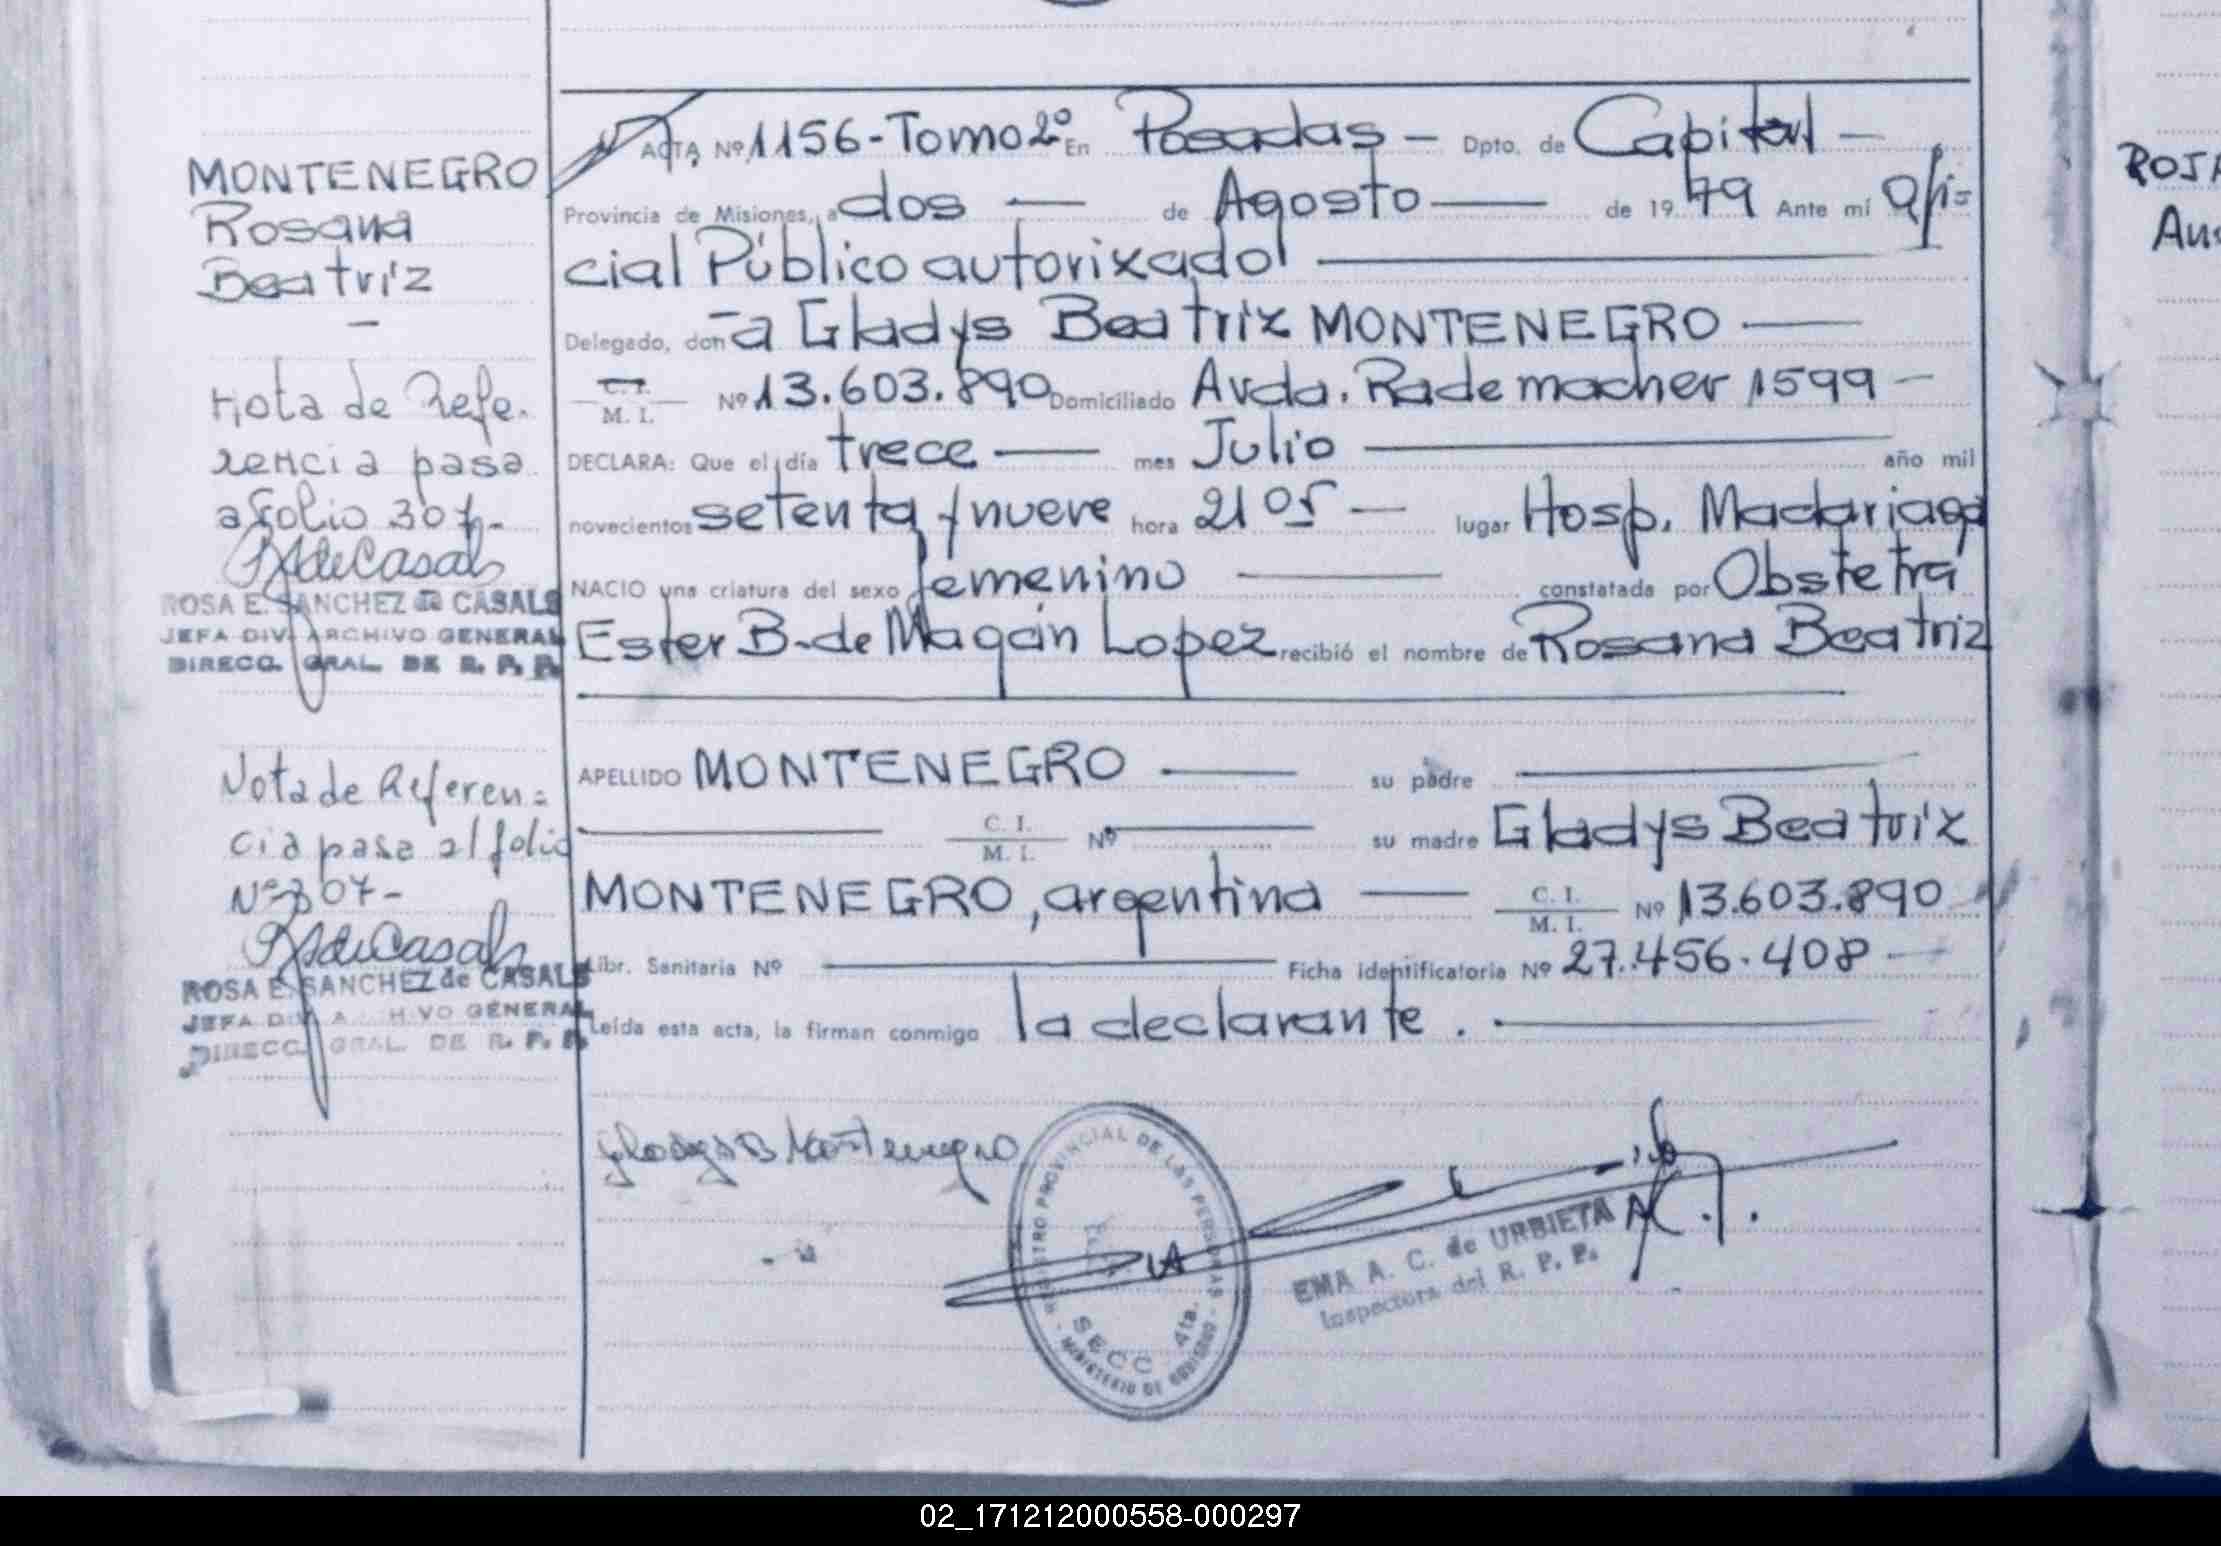 MONTENEGRO
Rosana
Beatriz
-
Nota de Refe-
rencia pasa
a folio 307-
RSdeCasals
ROSA E. SANCHEZ de CASALS
JEFA DIV. ARCHIVO GENERAL
DIRECC. GRAL. DE R. P. P.
Nota de Referen=
cia pasa al folio
Nº307-
RSdeCasals
ROSA E. SANCHEZ de CASALS
JEFA DIV. A HIVO GENERAL
DIRECC. GRAL. DE R. P. P.
ACTA Nº 1156-Tomo 2º En Posadas - Dpto. de Capital -
Provincia de Misiones, a dos — de Agosto — de 1979 Ante mí Ofi=
cial Público autorizado —
Delegado, don-a Gladys Beatriz MONTENEGRO —
C. I.
M. I. Nº 13.603.890 Domiciliado Avda. Rademacher 1599 -
DECLARA: Que el día trece — mes Julio — año mil
novecientos setenta y nueve hora 21 05 — lugar Hosp. Madariaga
NACIO una criatura del sexo femenino — constatada por Obstetra
Ester B. de Magán Lopez recibió el nombre de Rosana Beatriz
APELLIDO MONTENEGRO — su padre —
— C. I.
M. I. Nº — su madre Gladys Beatriz
MONTENEGRO, argentina — C. I.
M. I. Nº 13.603.890
Libr. Sanitaria Nº — Ficha identificatoria Nº 27.456.408 —
Leída esta acta, la firman conmigo la declarante. —
Gladys B Montenegro
REGISTRO PROVINCIAL DE LAS PERSONAS
SECC. 4ta.
- MINISTERIO DE GOBIERNO -
EMA A. C. de URBIETA
Inspectora del R. P. P.
ROSA
02_171212000558-000297